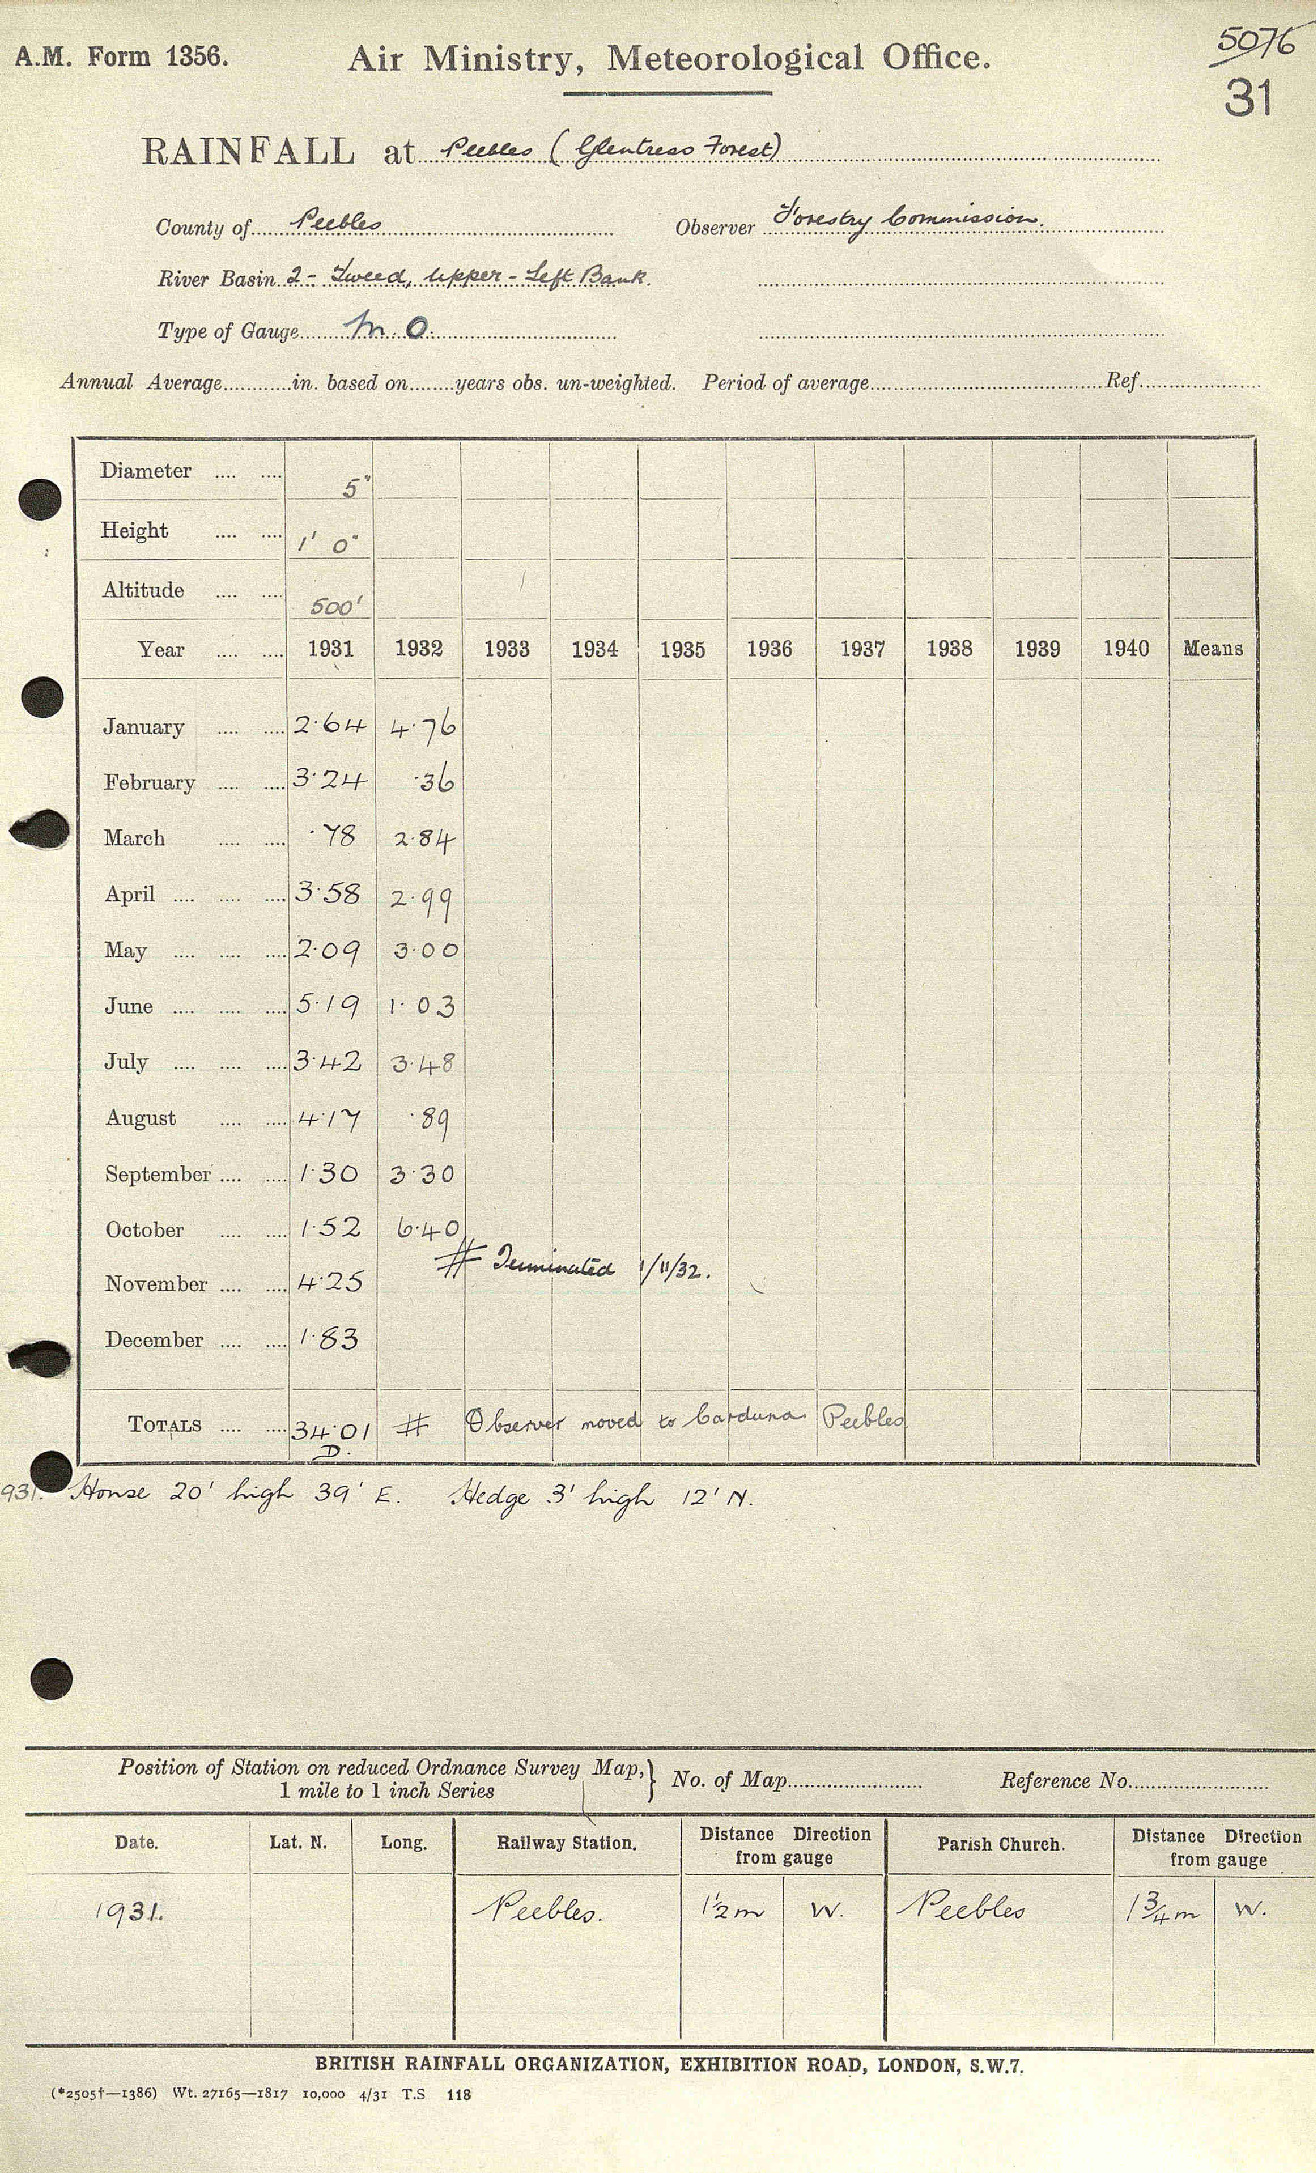 A.M. Form 1356. Air Ministry, Meteorological Office. 5076
31
RAINFALL at Peebles (Glentress Forest)
County of Peebles Observer Forestry Commission.
River Basin 2 - Tweed, Upper - Left Bank.
Type of Gauge M.O.
Annual Average in. based on years obs. un-weighted. Period of average Ref.
Diameter 5"
Height 1' 0"
Altitude 500'
Year 1931 1932 1933 1934 1935 1936 1937 1938 1939 1940 Means
January 2.64 4.76
February 3.24 .36
March .78 2.84
April 3.58 2.99
May 2.09 3.00
June 5.19 1.03
July 3.42 3.48
August 4.17 .89
September 1.30 3.30
October 1.52 6.40
# Terminated 1/11/32.
November 4.25
December 1.83
TOTALS 34.01 # Observer moved to Cardrona Peebles
D.
931. House 20' high 39' E. Hedge 3' high 12' N.
Position of Station on reduced Ordnance Survey Map, } No. of Map Reference No.
1 mile to 1 inch Series
Date. Lat. N. Long. Railway Station. Distance Direction from gauge Parish Church. Distance Direction from gauge
1931. Peebles. 1½ m W. Peebles 1¾ m W.
BRITISH RAINFALL ORGANIZATION, EXHIBITION ROAD, LONDON, S.W.7.
(*2505†—1386) Wt. 27165—1817 10,000 4/31 T.S 118